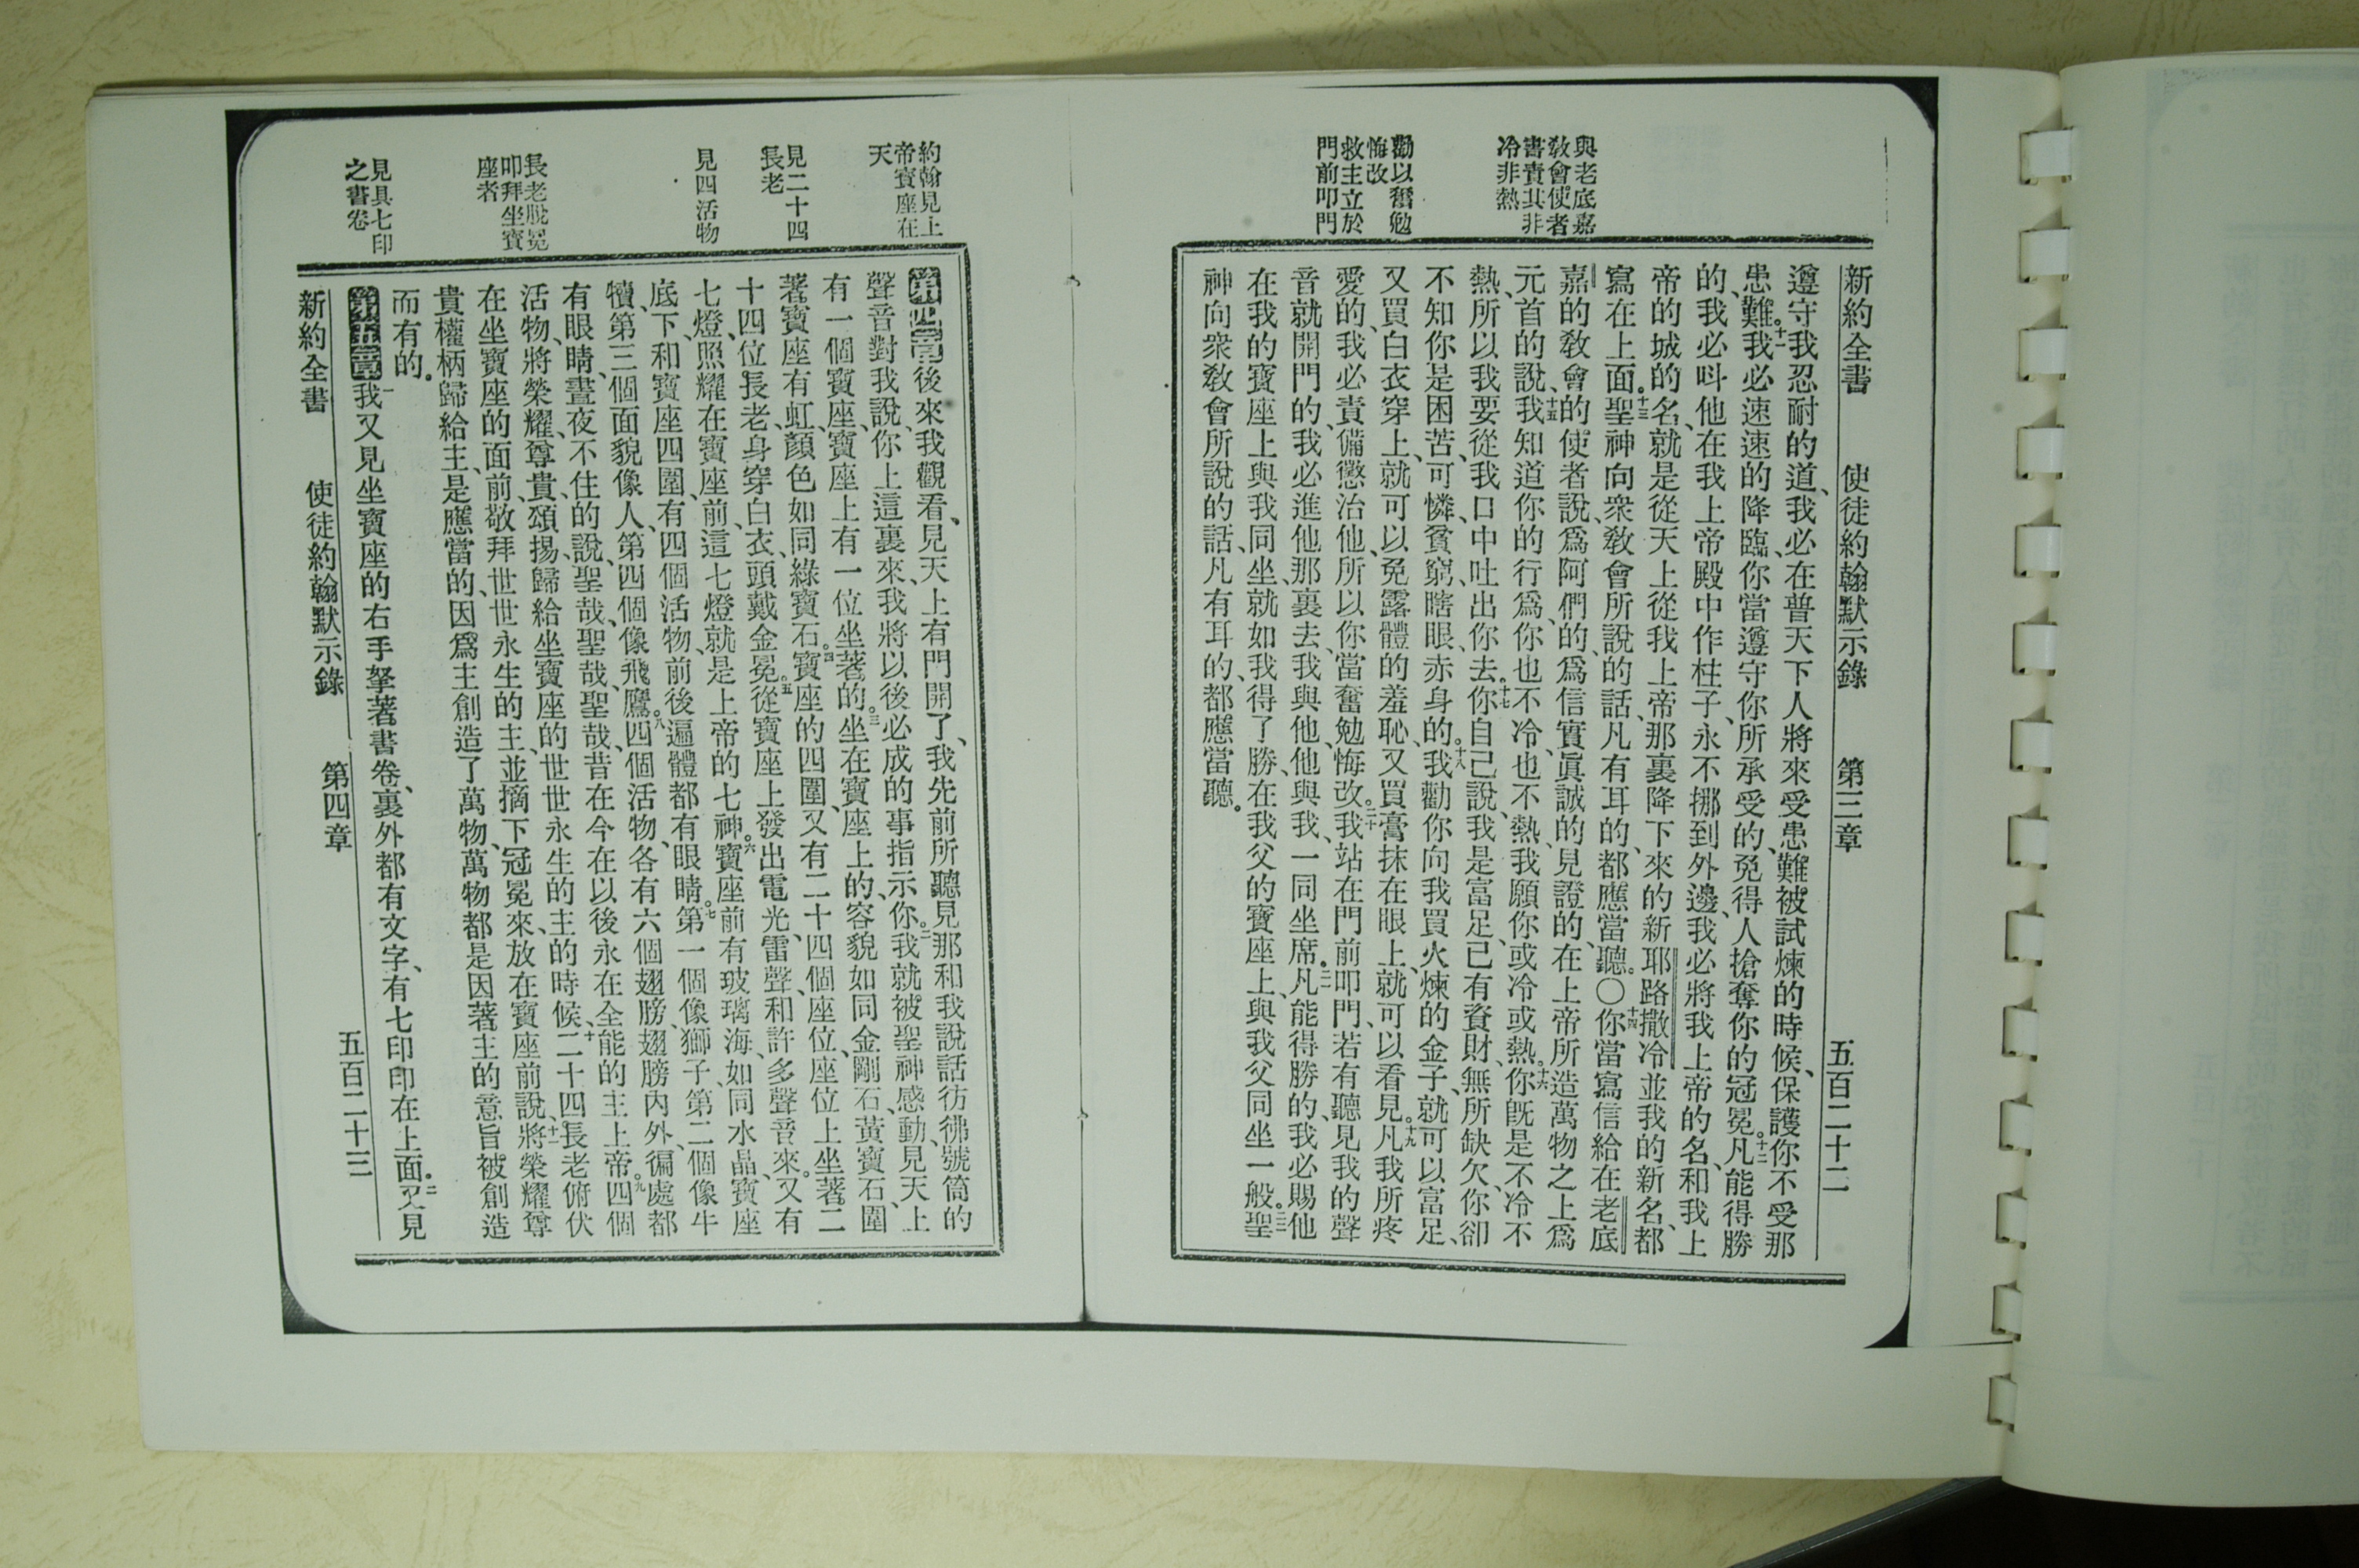 新約全書　使徒約翰默示錄　第三章　五百二十二
與老底嘉
敎會使者
書責其非
冷非熱
勸以奮勉
悔改
救主立於
門前叩門
遵守我忍耐的道、我必在普天下人將來受患難、被試煉的時候、保護你不受那
患難。十一我必速速的降臨、你當遵守你所承受的、免得人搶奪你的冠冕。十二凡能得勝
的、我必呌他在我上帝殿中作柱子、永不挪到外邊、我必將我上帝的名、和我上
帝的城的名、就是從天上從我上帝那裏降下來的新耶路撒冷、並我的新名、都
寫在上面。十三聖神向衆敎會所說的話、凡有耳的、都應當聽。〇十四你當寫信給在老底
嘉的敎會的使者說、爲阿們的、爲信實眞誠的見證的、在上帝所造萬物之上爲
元首的說、十五我知道你的行爲、你也不冷、也不熱、我願你或冷或熱。十六你旣是不冷不
熱、所以我要從我口中吐出你去。十七你自己說、我是富足、已有資財、無所缺欠、你卻
不知你是困苦、可憐、貧窮、瞎眼、赤身的。十八我勸你向我買火煉的金子、就可以富足、
又買白衣穿上、就可以免露體的羞恥、又買膏抹在眼上、就可以看見。十九凡我所疼
愛的、我必責備懲治他、所以你當奮勉悔改。二十我站在門前叩門、若有聽見我的聲
音就開門的、我必進他那裏去、我與他、他與我、一同坐席。二一凡能得勝的、我必賜他
在我的寶座上與我同坐、就如我得了勝、在我父的寶座上、與我父同坐一般。二二聖
神向衆敎會所說的話、凡有耳的、都應當聽。
約翰見上
帝寶座在
天
見二十四
長老
見四活物
長老脫冕
叩拜坐寶
座者
見具七印
之書卷
第四章後來我觀看、見天上有門開了、我先前所聽見那和我說話彷彿號筒的
聲音對我說、你上這裏來、我將以後必成的事指示你。二我就被聖神感動、見天上
有一個寶座、寶座上有一位坐著的。三坐在寶座上的、容貌如同金剛石、黃寶石、圍
著寶座有虹、顏色如同綠寶石。四寶座的四圍、又有二十四個座位、座位上坐著二
十四位長老、身穿白衣、頭戴金冕。五從寶座上發出電光、雷聲、和許多聲音來。又有
七燈、照耀在寶座前、這七燈就是上帝的七神。六寶座前有玻璃海、如同水晶、寶座
底下、和寶座四圍、有四個活物、前後遍體都有眼睛。七第一個像獅子、第二個像牛
犢、第三個面貌像人、第四個像飛鷹。八四個活物、各有六個翅膀、翅膀內外、徧處都
有眼睛、晝夜不住的說、聖哉、聖哉、聖哉、昔在今在以後永在全能的主上帝。九四個
活物、將榮耀、尊貴、頌揚、歸給坐寶座的世世永生的主的時候、十二十四長老俯伏
在坐寶座的面前、敬拜世世永生的主、並摘下冠冕來、放在寶座前說、十一將榮耀尊
貴權柄歸給主、是應當的、因爲主創造了萬物、萬物都是因著主的意旨被創造
而有的。
第五章一我又見坐寶座的右手拏著書卷、裏外都有文字、有七印印在上面。二又見
新約全書　使徒約翰默示錄　第四章　五百二十三